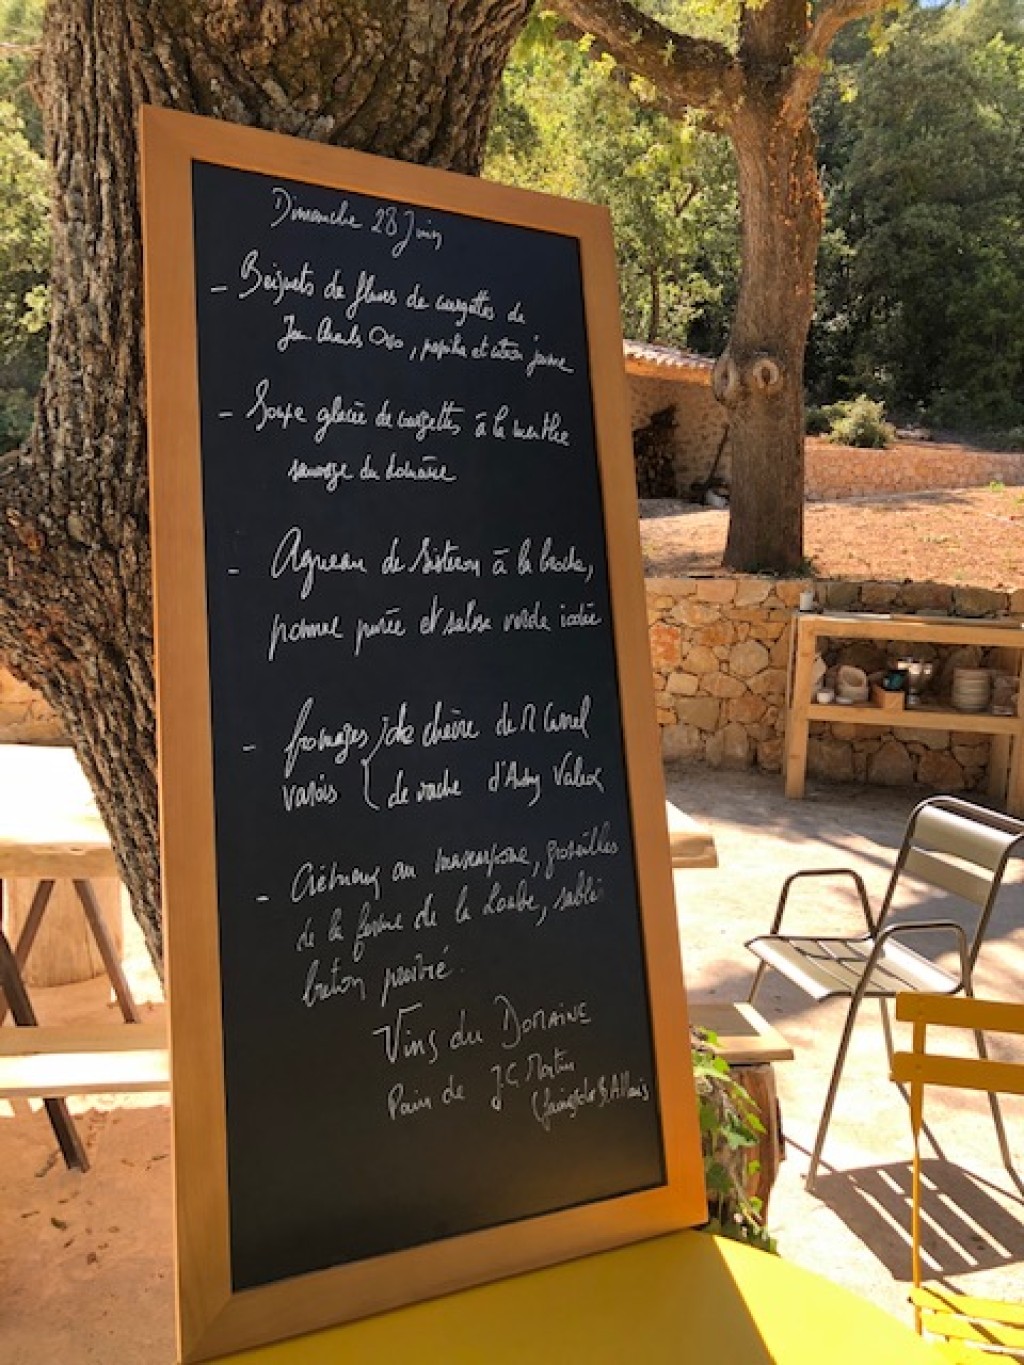 Dimanche 28 Juin
- Beignets de fleurs de courgettes de
Jean Charles Orso, paprika et citron jaune
- Soupe glacée de courgettes à la menthe
sauvage du domaine
- Agneau de Sisteron à la broche,
pomme purée et salsa verde iodée
- fromages de chèvre de M
varois de vache d'Audrey
- Crémeux au mascarpone, groseilles
de la ferme de la Loube, sablé
breton poivré.
Vins du DOMAINE
Pain de J.C Martin